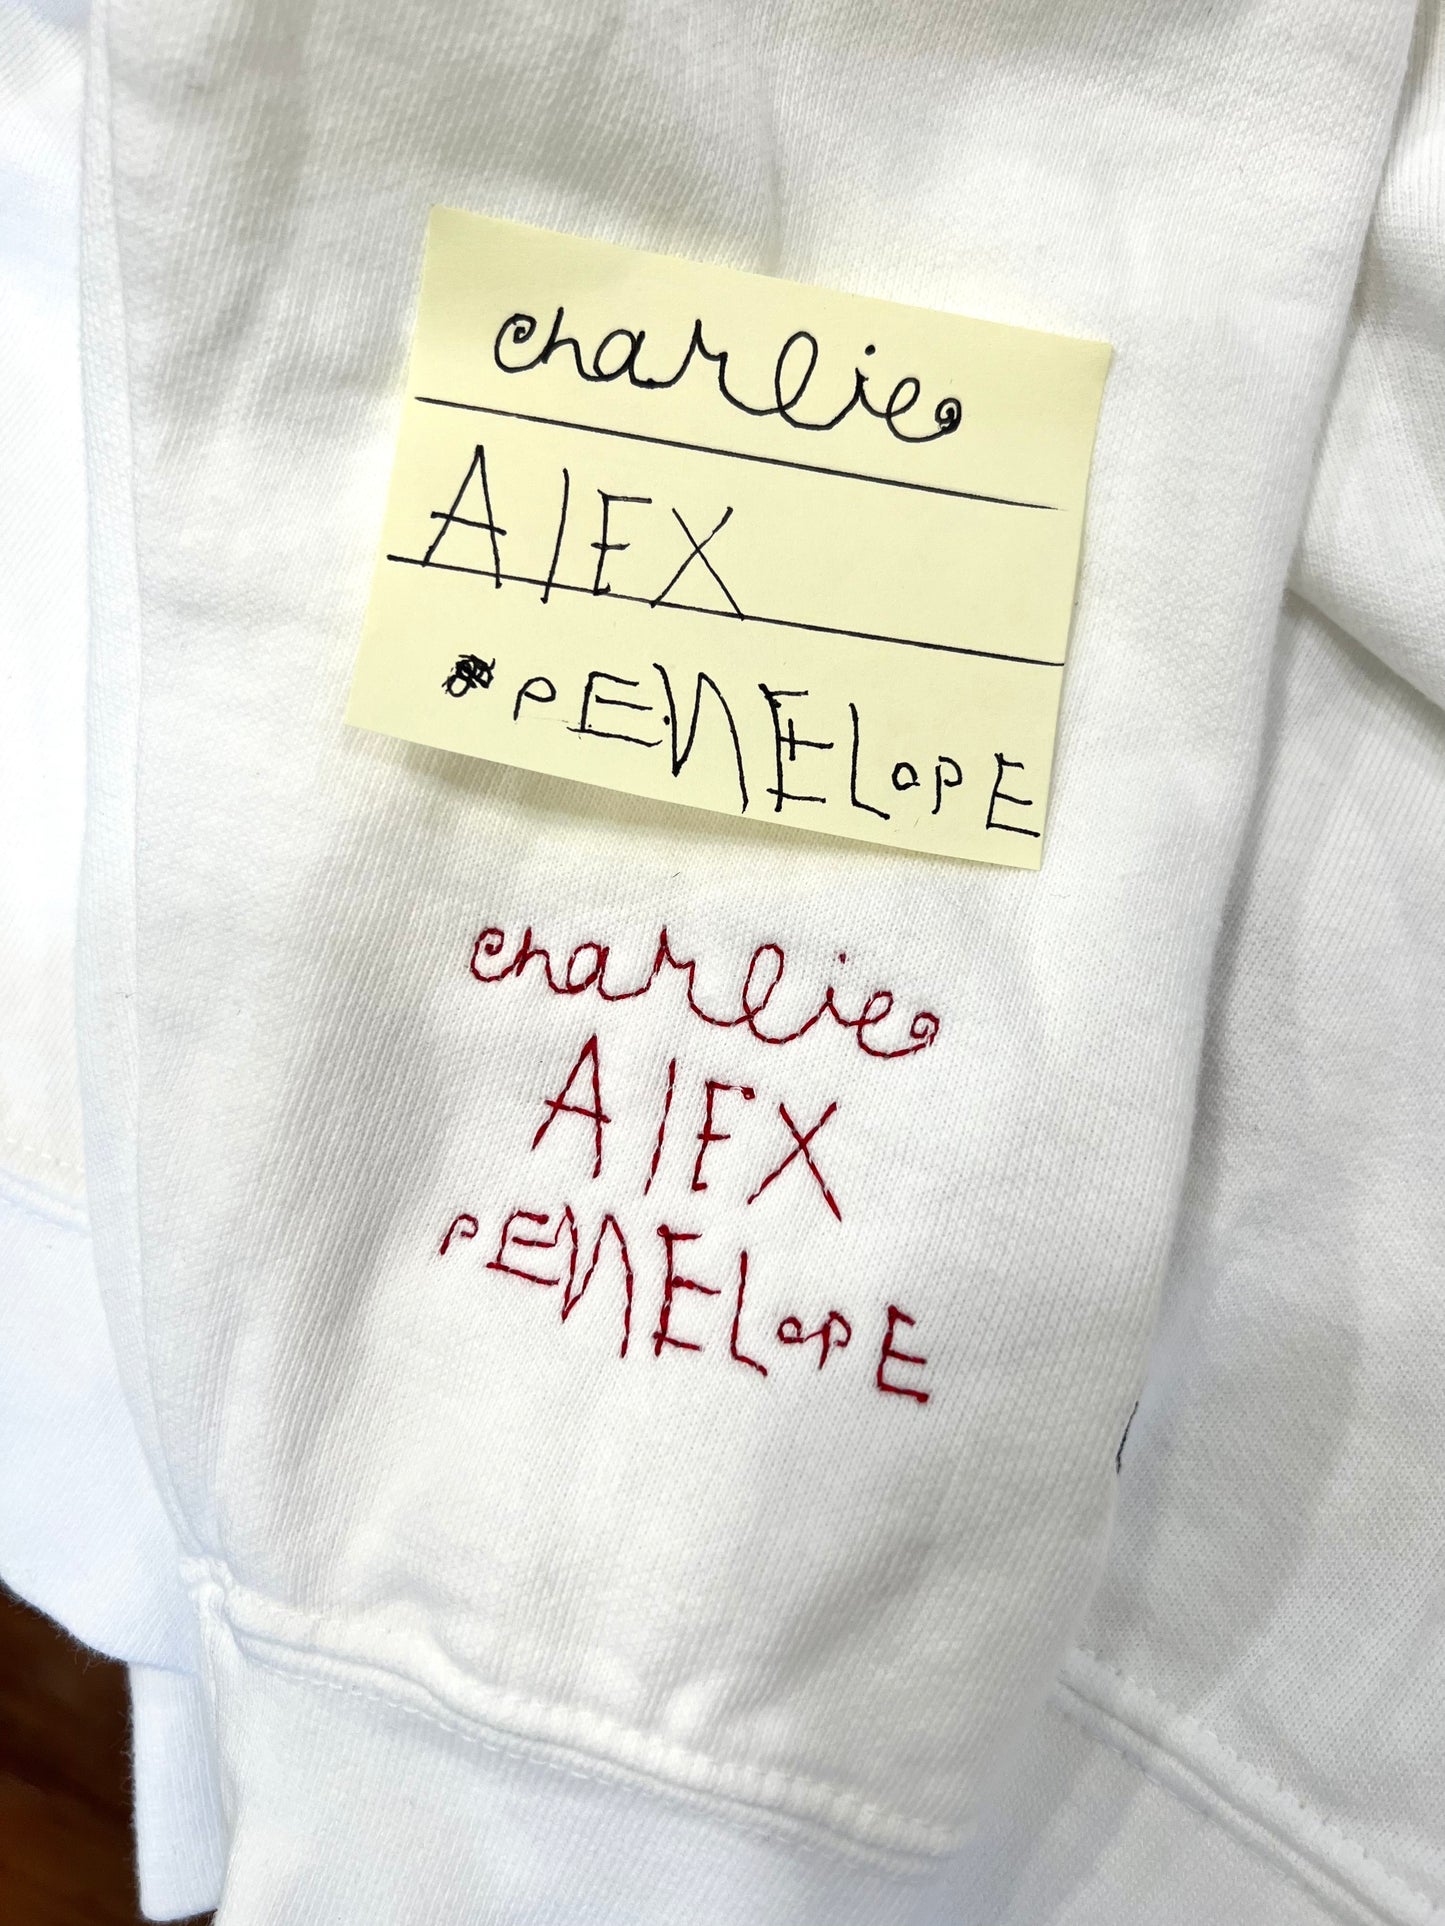 charlie
AlEX
pENELoPE
charlie
AlEX
pENELoPE